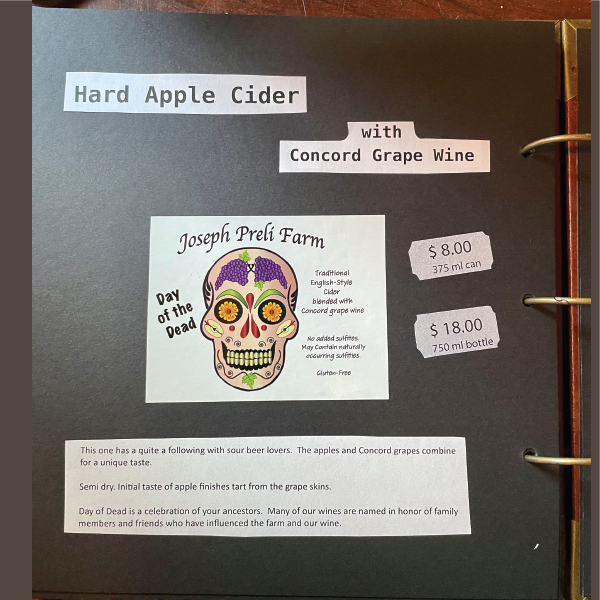 Hard Apple Cider
with
Concord Grape Wine
Joseph Preli Farm
Day
of the
Dead
Traditional
English-Style
Cider
blended with
Concord grape wine
No added sulfites.
May Contain naturally
occurring sulfites.
Gluten-Free
$ 8.00
375 ml can
$ 18.00
750 ml bottle
This one has a quite a following with sour beer lovers. The apples and Concord grapes combine
for a unique taste.
Semi dry. Initial taste of apple finishes tart from the grape skins.
Day of Dead is a celebration of your ancestors. Many of our wines are named in honor of family
members and friends who have influenced the farm and our wine.